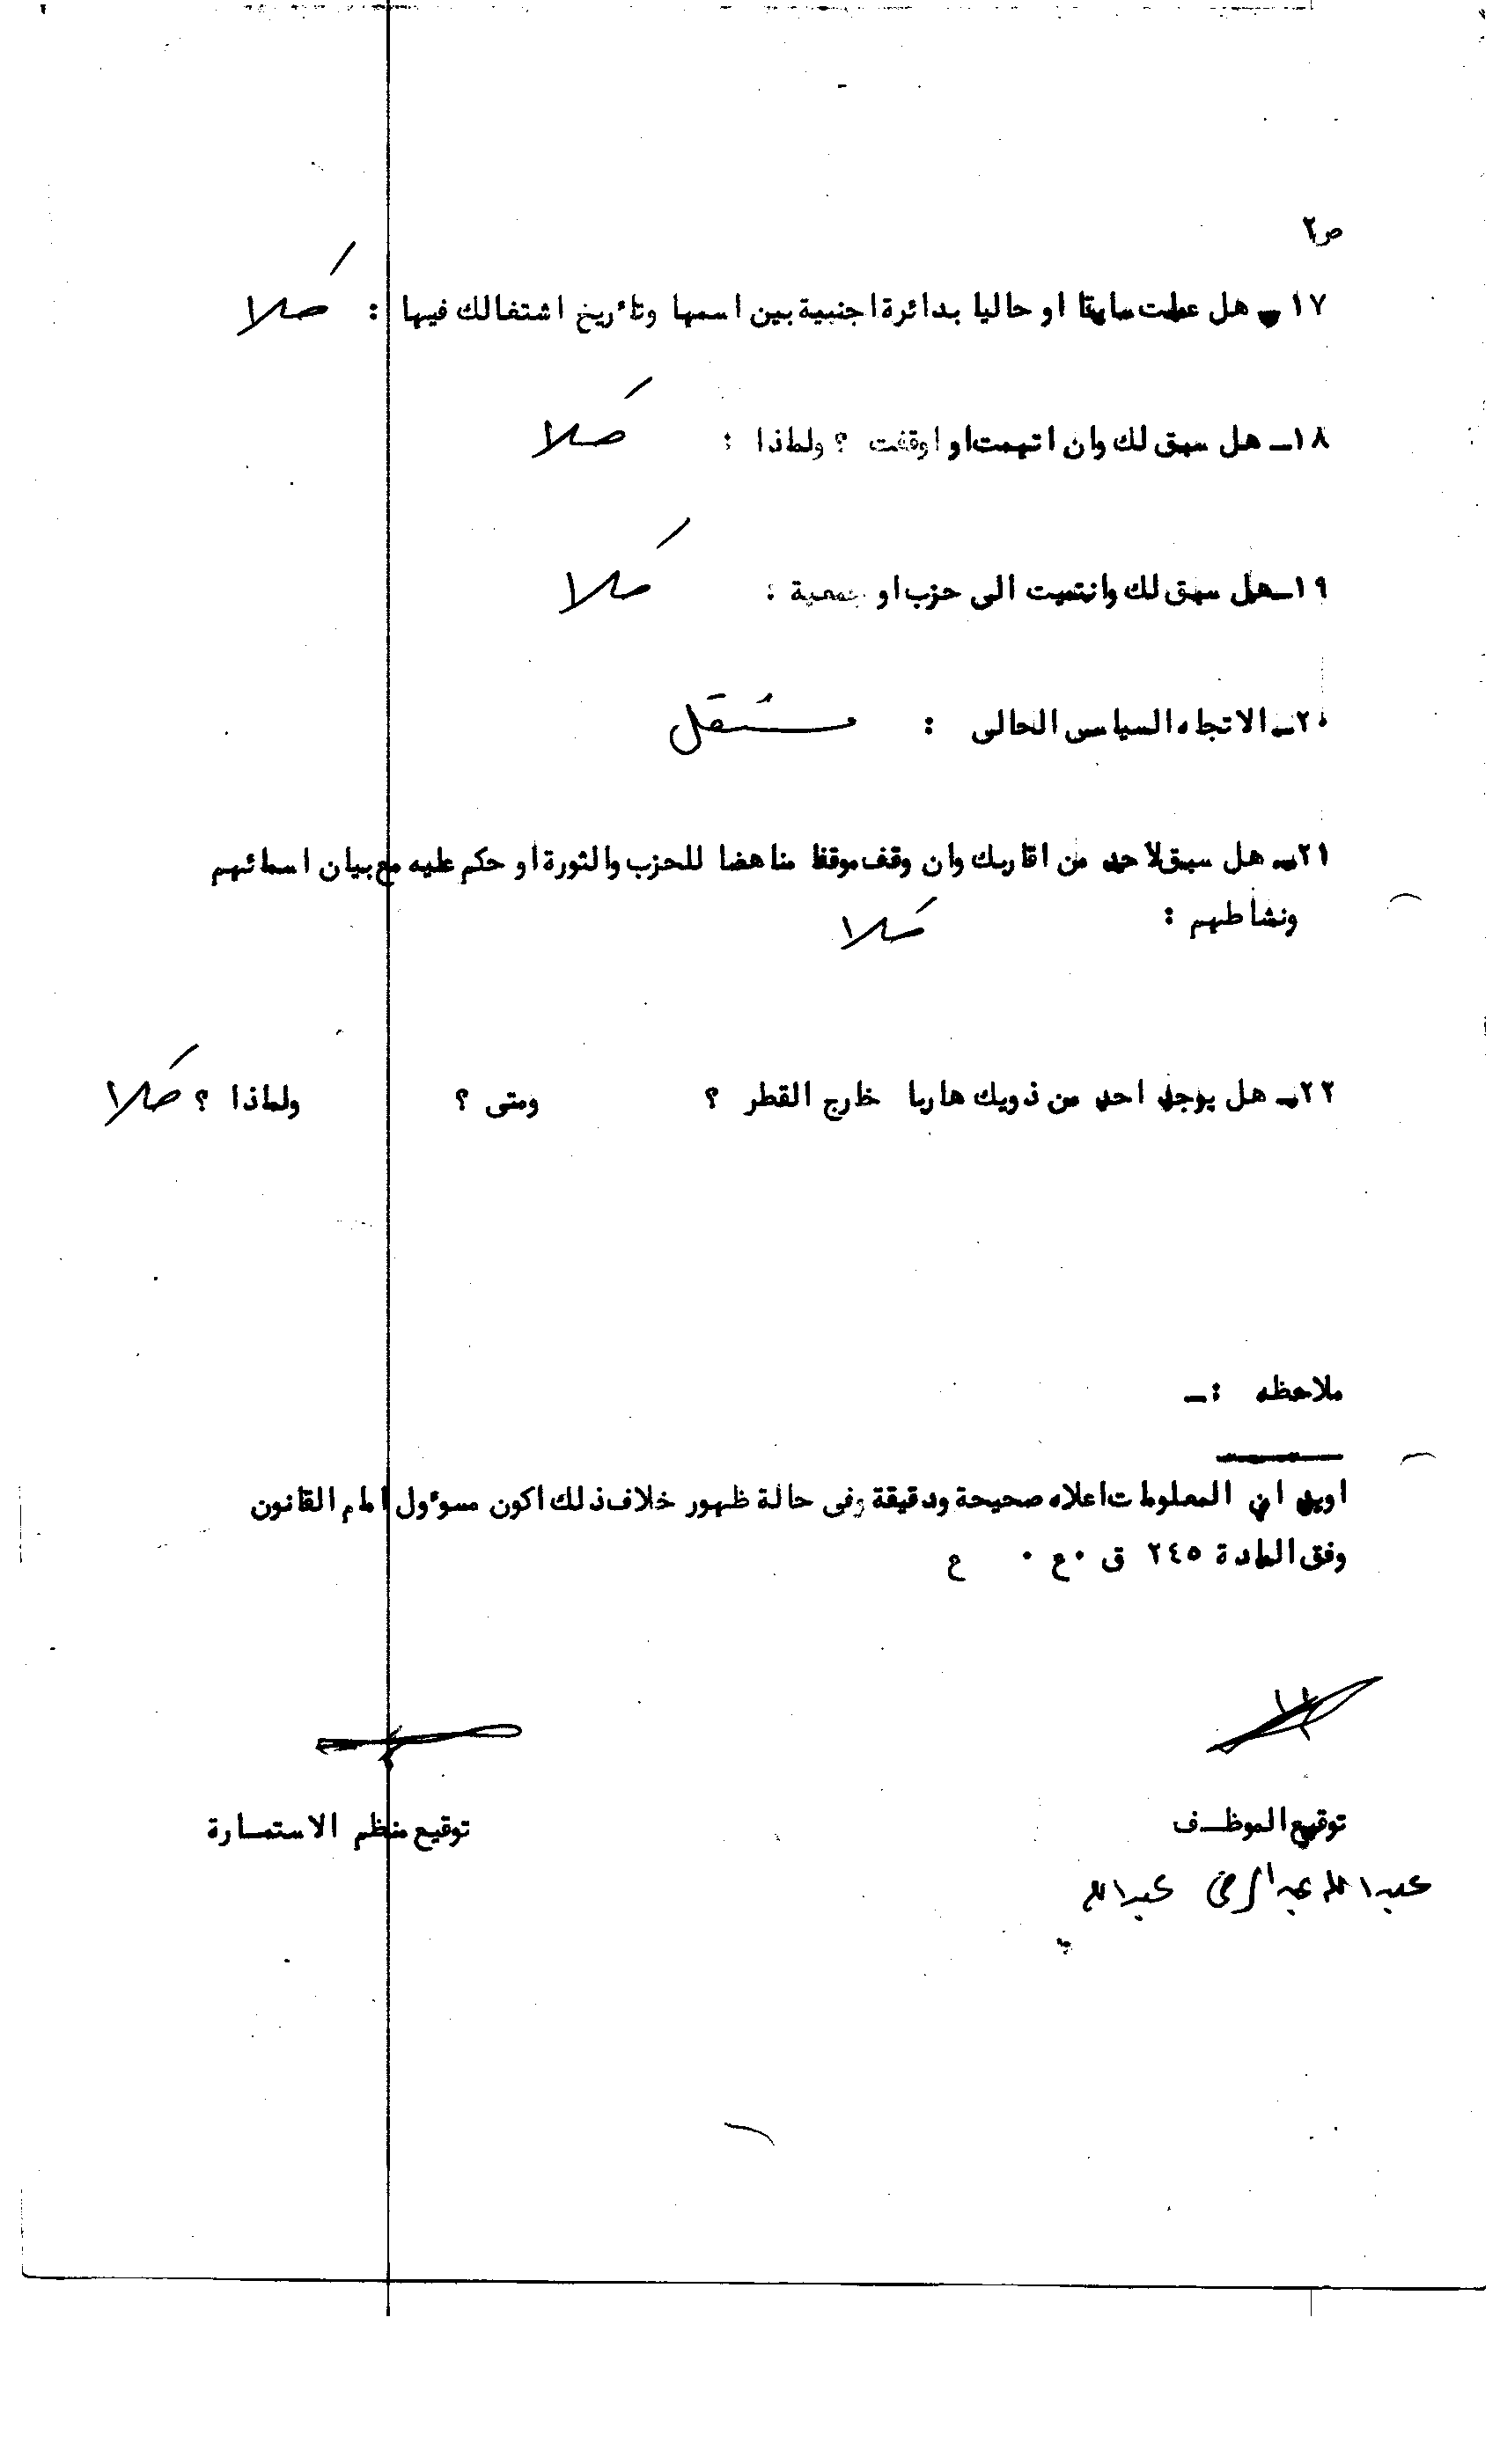 ص٢
١٧ـ هل عملت سابقا او حاليا بدائرة اجنبية بين اسمها وتأريخ اشتغالك فيها : كلا
١٨ـ هل سبق لك وان اتهمت او اوقفت ؟ ولماذا : كلا
١٩ـ هل سبق لك وانتميت الى حزب او جمعية : كلا
٢٠ـ الاتجاه السياسى الحالى : مستقل
٢١ـ هل سبق لاحد من اقاربك وان وقف موقفا مناهضا للحزب والثورة او حكم عليه مع بيان اسمائهم
ونشاطهم : كلا
٢٢ـ هل يوجد احد من ذويك هاربا خارج القطر ؟ ومتى ؟ ولماذا ؟ كلا
ملاحظه :ـ
اويد ان المعلومات اعلاه صحيحة ودقيقة وفى حالة ظهور خلاف ذلك اكون مسوءول امام القانون
وفق المادة ٢٤٥ ق ٠ع ٠ ع
توقيع الموظف توقيع منظم الاستمارة
عبدالله عبدالله